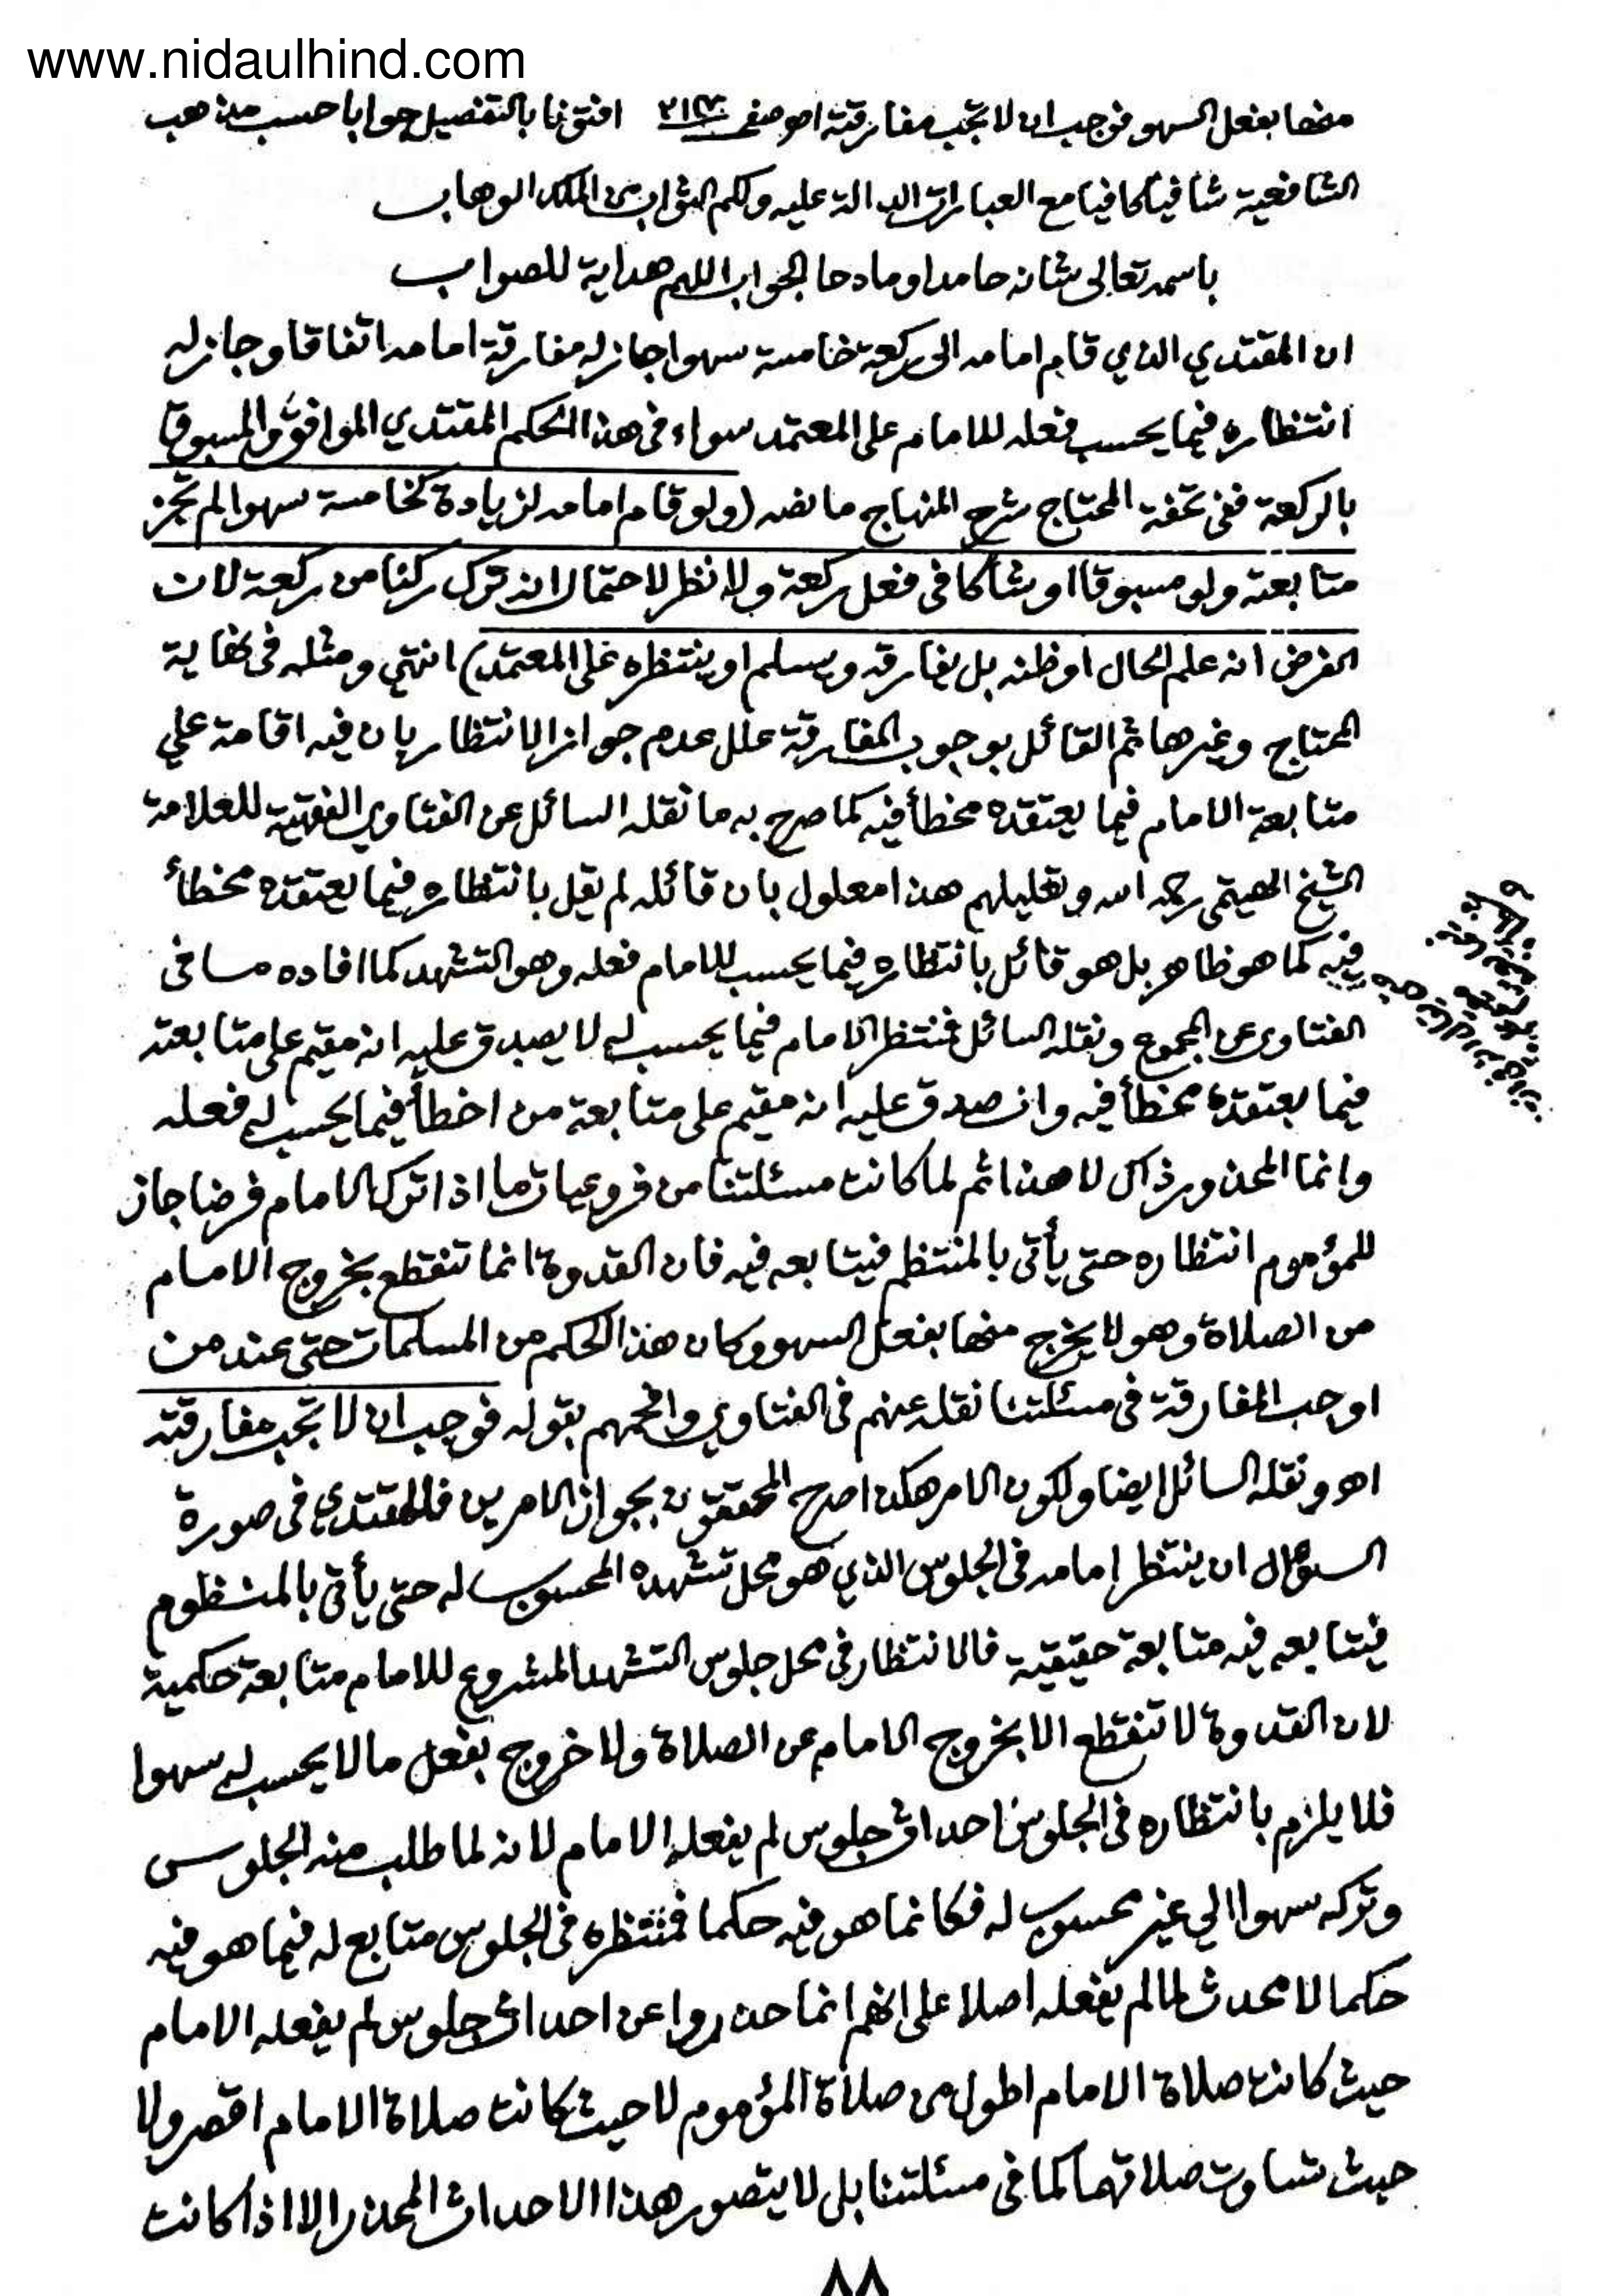 www.nidaulhind.com
منها بفعل السهو فوجب ان لا تجب مفارقته اهـ صفحـ افتونا بالتفصيل جوابا حسب مذهب
الشافعية شافيا كافيا مع العبارات الدالة عليه ولكم الثواب من الملك الوهاب
باسمه تعالى شانه حامدا ومادحا الجواب اللهم هداية للصواب
ان المقتدي الذي قام امامه الى ركعة خامسة سهوا جاز له مفارقة امامه اتفاقا وجاز له
انتظاره فيما يحسب فعله للامام على المعتمد سواء فى هذا الحكم المقتدي الموافق والمسبوق
بالركعة ففى تحفة المحتاج شرح المنهاج ما نصه (ولو قام امامه لزيادة كخامسة سهوا لم تجز
متابعته ولو مسبوقا او شاكا فى فعل ركعة ولا نظر لاحتمال انه ترك ركنا من ركعة لان
الفرض انه علم الحال او ظنه بل يفارقه ويسلم او ينتظره على المعتمد) انتهى ومثله فى نهاية
المحتاج وغيرها ثم القائل بوجوب المفارقة علل عدم جواز الانتظار بان فيه اقامة على
متابعة الامام فيما يعتقده مخطأ فيه كما صرح به ما نقله السائل عن الفتاوى الفقهية للعلامة
الشيخ الهيتمى رحمه الله وتعليلهم هذا معلول بان قائله لم يقل بانتظاره فيما يعتقده مخطأ
فيه كما هو ظاهر بل هو قائل بانتظاره فيما يحسب للامام فعله وهو التشهد كما افاده ما فى
الفتاوى عن المجموع ونقله السائل فمنتظر الامام فيما يحسب له لا يصدق عليه انه مقيم على متابعته
فيما يعتقده مخطأ فيه وان صدق عليه انه مقيم على متابعة من اخطأ فيما يحسب له فعله
وانما المحذور ذاك لا هذا ثم لما كانت مسئلتنا من فروعيات ما اذا ترك الامام فرضا جاز
للمؤموم انتظاره حتى يأتى بالمنتظم فيتابعه فيه فان القدوة انما تنقطع بخروج الامام
من الصلاة وهو لا يخرج منها بفعل السهو وكان هذا الحكم من المسلمات حتى عند من
اوجب المفارقة فى مسئلتنا نقله عنهم فى الفتاوى وافحمهم بقوله فوجب ان لا تجب مفارقته
اهـ ونقله السائل ايضا ولكون الامر هكذا صرح المحققون بجواز الامرين فللمقتدي فى صورة
السؤال ان ينتظر امامه فى الجلوس الذي هو محل تشهده المحسوب له حتى يأتى بالمنتظوم
فيتابعه فيه متابعة حقيقية فالانتظار فى محل جلوس التشهد المشروع للامام متابعة حكمية
لان القدوة لا تنقطع الا بخروج الامام عن الصلاة ولا خروج بفعل ما لا يحسب له سهوا
فلا يلزم بانتظاره فى الجلوس احداث جلوس لم يفعله الامام لانه لما طلب منه الجلوس
وتركه سهوا الي غير محسوب له فكانما هو فيه حكما فمنتظره فى الجلوس متابع له فيما هو فيه
حكما لا محدث لما لم يفعله اصلا على انهم انما حذروا عن احداث جلوس لم يفعله الامام
حيث كانت صلاة الامام اطول من صلاة المؤموم لا حيث كانت صلاة الامام اقصر ولا
حيث تساوت صلاتهما كما فى مسئلتنا بل لا يتصور هذا الاحداث المحذر الا اذا كانت
٨٨